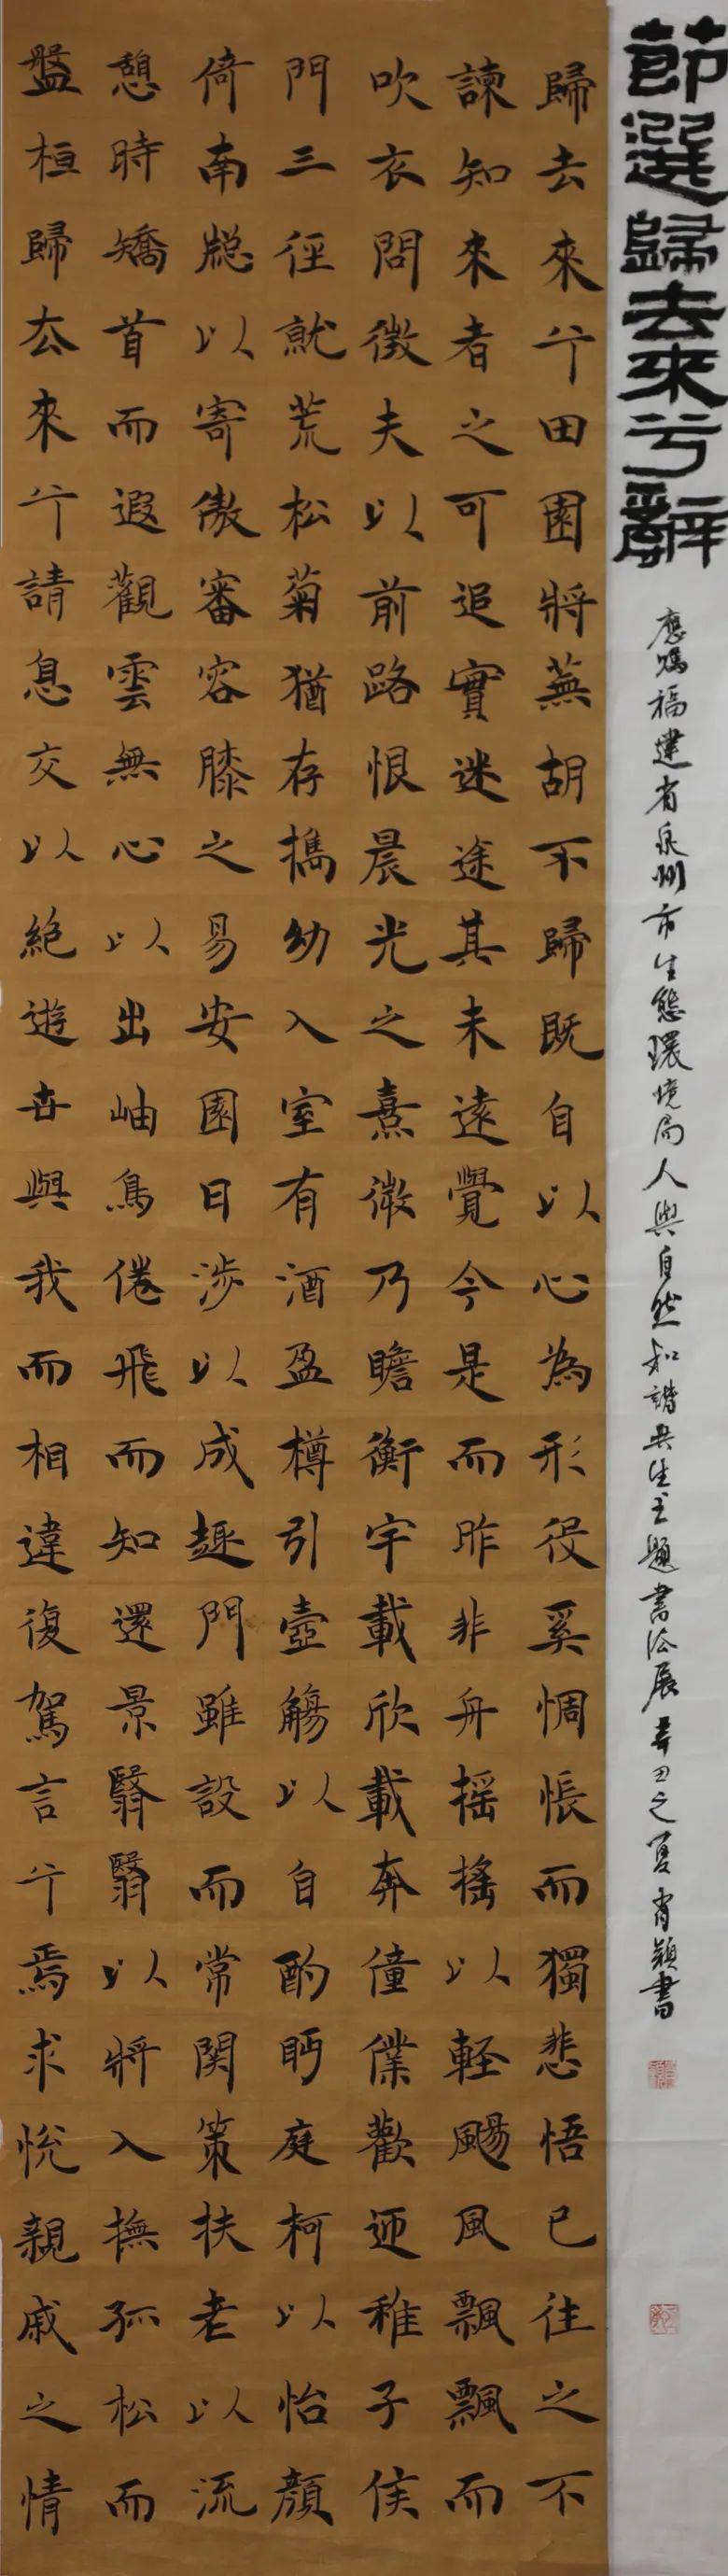 節選歸去來兮辭
應囑福建省泉州市生態環境局人與自然和諧共生主題書法展辛丑之夏肖穎書
歸去來兮田園將蕪胡不歸既自以心為形役奚惆悵而獨悲悟已往之不
諫知來者之可追實迷途其未遠覺今是而昨非舟搖搖以軽颺風飄飄而
吹衣問徵夫以前路恨晨光之熹微乃瞻衡宇載欣載奔僮僕歡迎稚子候
門三徑就荒松菊猶存攜幼入室有酒盈樽引壺觴以自酌眄庭柯以怡顏
倚南牕以寄傲審容膝之易安園日涉以成趣門雖設而常関策扶老以流
憩時矯首而遐觀雲無心以出岫鳥倦飛而知還景翳翳以將入撫孤松而
盤桓歸去來兮請息交以絕遊世與我而相違復駕言兮焉求悅親戚之情